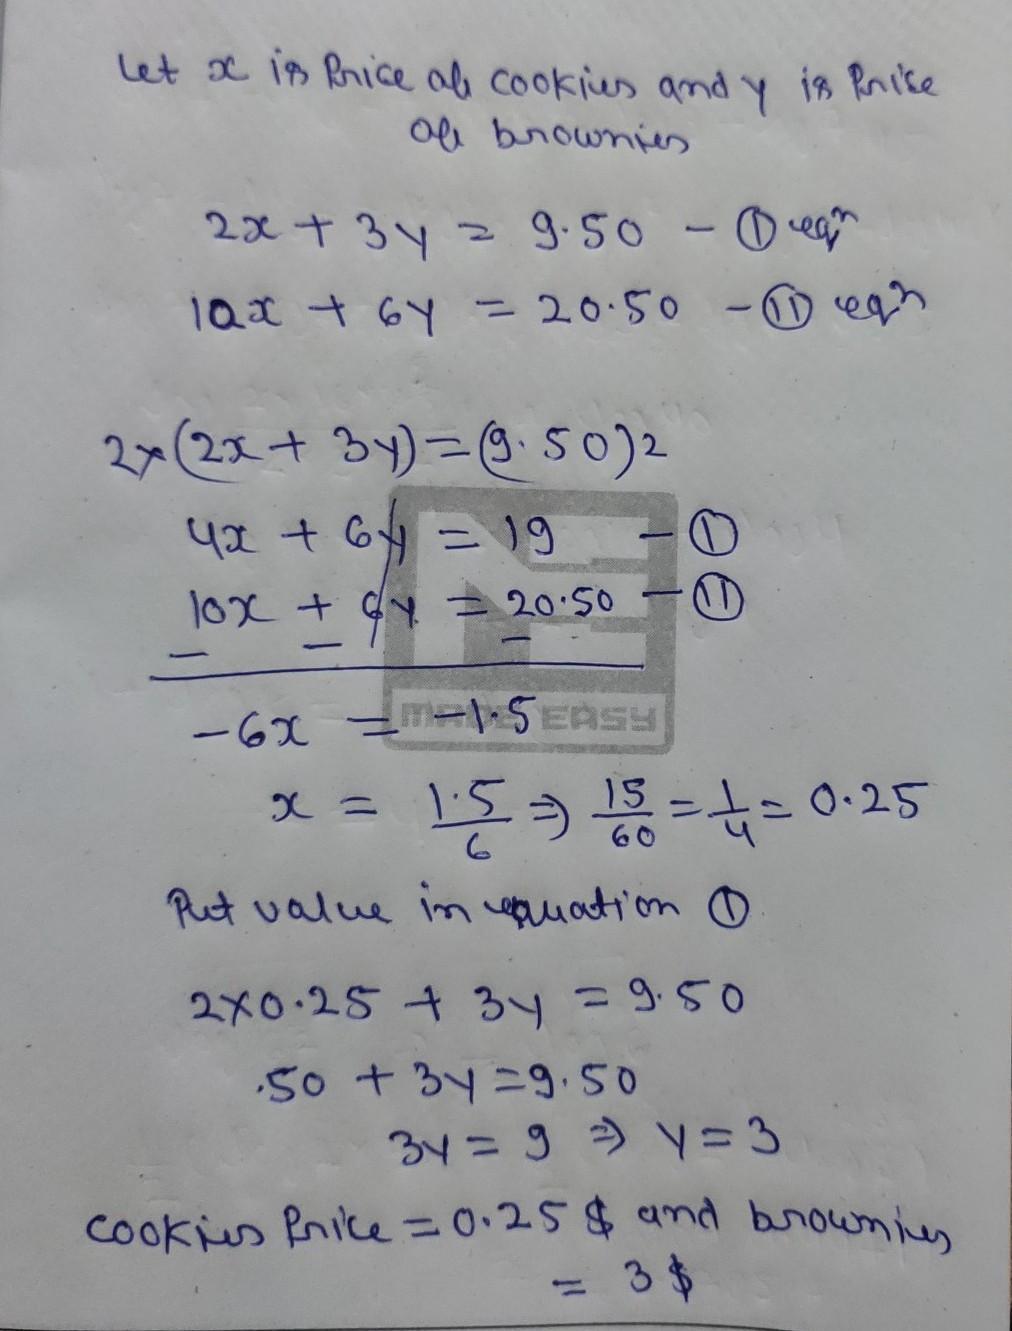 Let x is Price of cookies and y is Price
of brownies
2x + 3y = 9.50 - ① eqn
10x + 6y = 20.50 - ⑪ eqn
2×(2x + 3y) = (9.50)2
4x + 6y = 19 - ①
10x + 6y = 20.50 - ⑪
- - -
-6x = -1.5
MADE EASY
x = 1.5/6 ⇒ 15/60 = 1/4 = 0.25
Put value in equation ①
2×0.25 + 3y = 9.50
.50 + 3y = 9.50
3y = 9 ⇒ y = 3
cookies Price = 0.25 $ and brownies
= 3 $